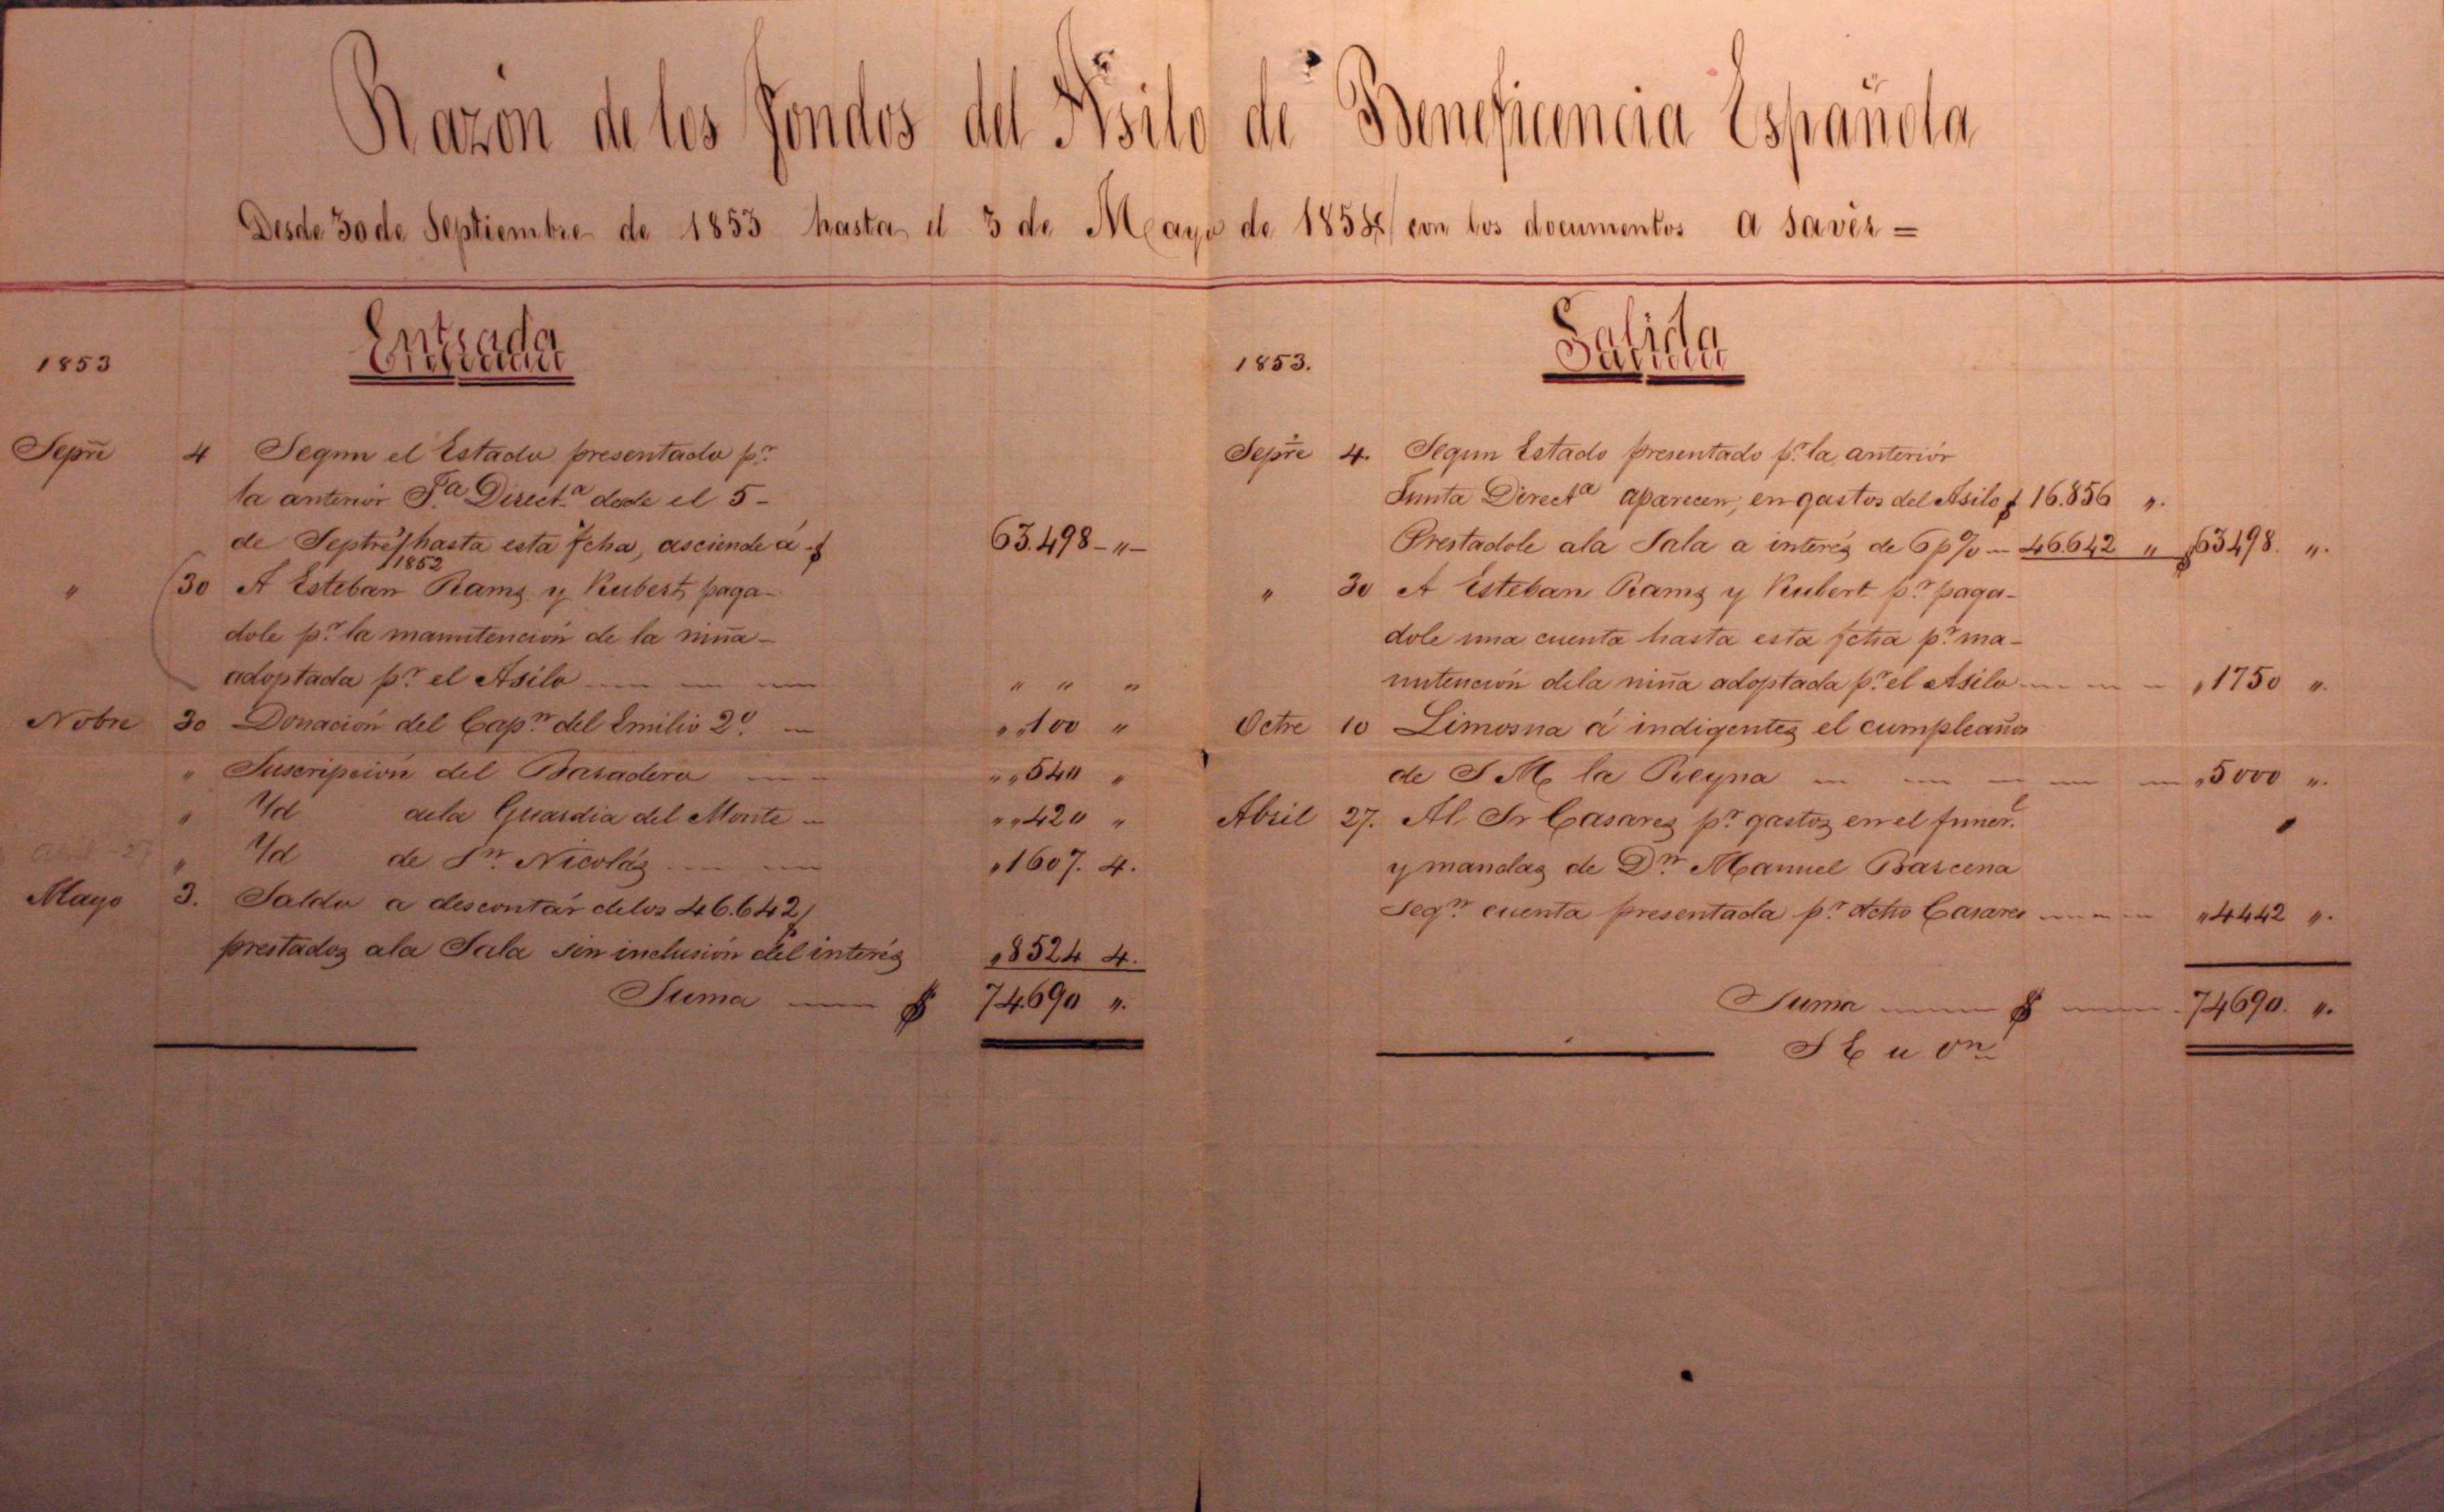 Razon de los Fondos del Asilo de Beneficencia Española
Desde 30 de Septiembre de 1853 hasta el 3 de Mayo de 1854 con los documentos a saver =
Entrada
1853
Sepre 4 Segun el Estado presentado pr
la anterior Ja Directa desde el 5 -
de Septre/ hasta esta fcha, asciende á $ 63.498 - " -
1852
" (30 A Esteban Rams y Rubert paga-
dole pr la manutencion de la niña -
adoptada pr el Asilo " " "
Nobre 30 Donacion del Capn del Emilio 2º " " 100 "
" Suscripcion del Baradero " " 540 "
" Yd dela Guardia del Monte " " 420 "
" Yd de Sn Nicolás " 1607. 4.
Mayo 3. Saldo a descontár delos 46.642/
prestados ala Sala sin inclusión del interés " 8524 4.
Suma $ 74.690 ".
Salida
1853.
Sepre 4. Segun Estado presentado pr la anteriór
Junta Directa aparecen, en gastos del Asilo $ 16.856 ".
Prestadole ala Sala a interés de 6 p% 46.642 " $ 63498. ".
" 30 A Esteban Rams y Rubert pr paga-
dole una cuenta hasta esta fcha pr ma-
nutención dela niña adoptada pr el Asilo " 1750 ".
Octre 10 Limosna á indigentes el cumpleaños
de S M la Reyna " 5000 ".
Abril 27. Al Sr Casares pr gastos en el funerl
y mandas de Dn Manuel Barcena
segn cuenta presentada pr dcho Casares " 4442 ".
Suma $ 74690. ".
S E u On